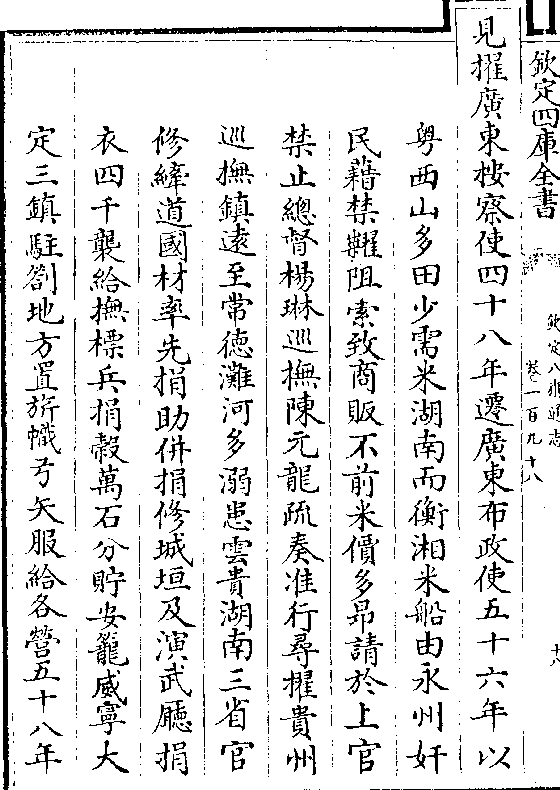 欽定四庫全書
欽定八旗通志
卷一百九十八
十八
見擢廣東按察使四十八年遷廣東布政使五十六年以
粤西山多田少需米湖南而衡湘米船由永州奸
民藉禁糴阻索致商販不前米價多昂請於上官
禁止總督楊琳巡撫陳元龍疏奏准行尋擢貴州
巡撫鎮遠至常德灘河多溺患雲貴湖南三省官
修縴道國材率先捐助併捐修城垣及演武廳捐
衣四千襲給撫標兵捐穀萬石分貯安籠威寧大
定三鎮駐劄地方置旂幟弓矢服給各營五十八年